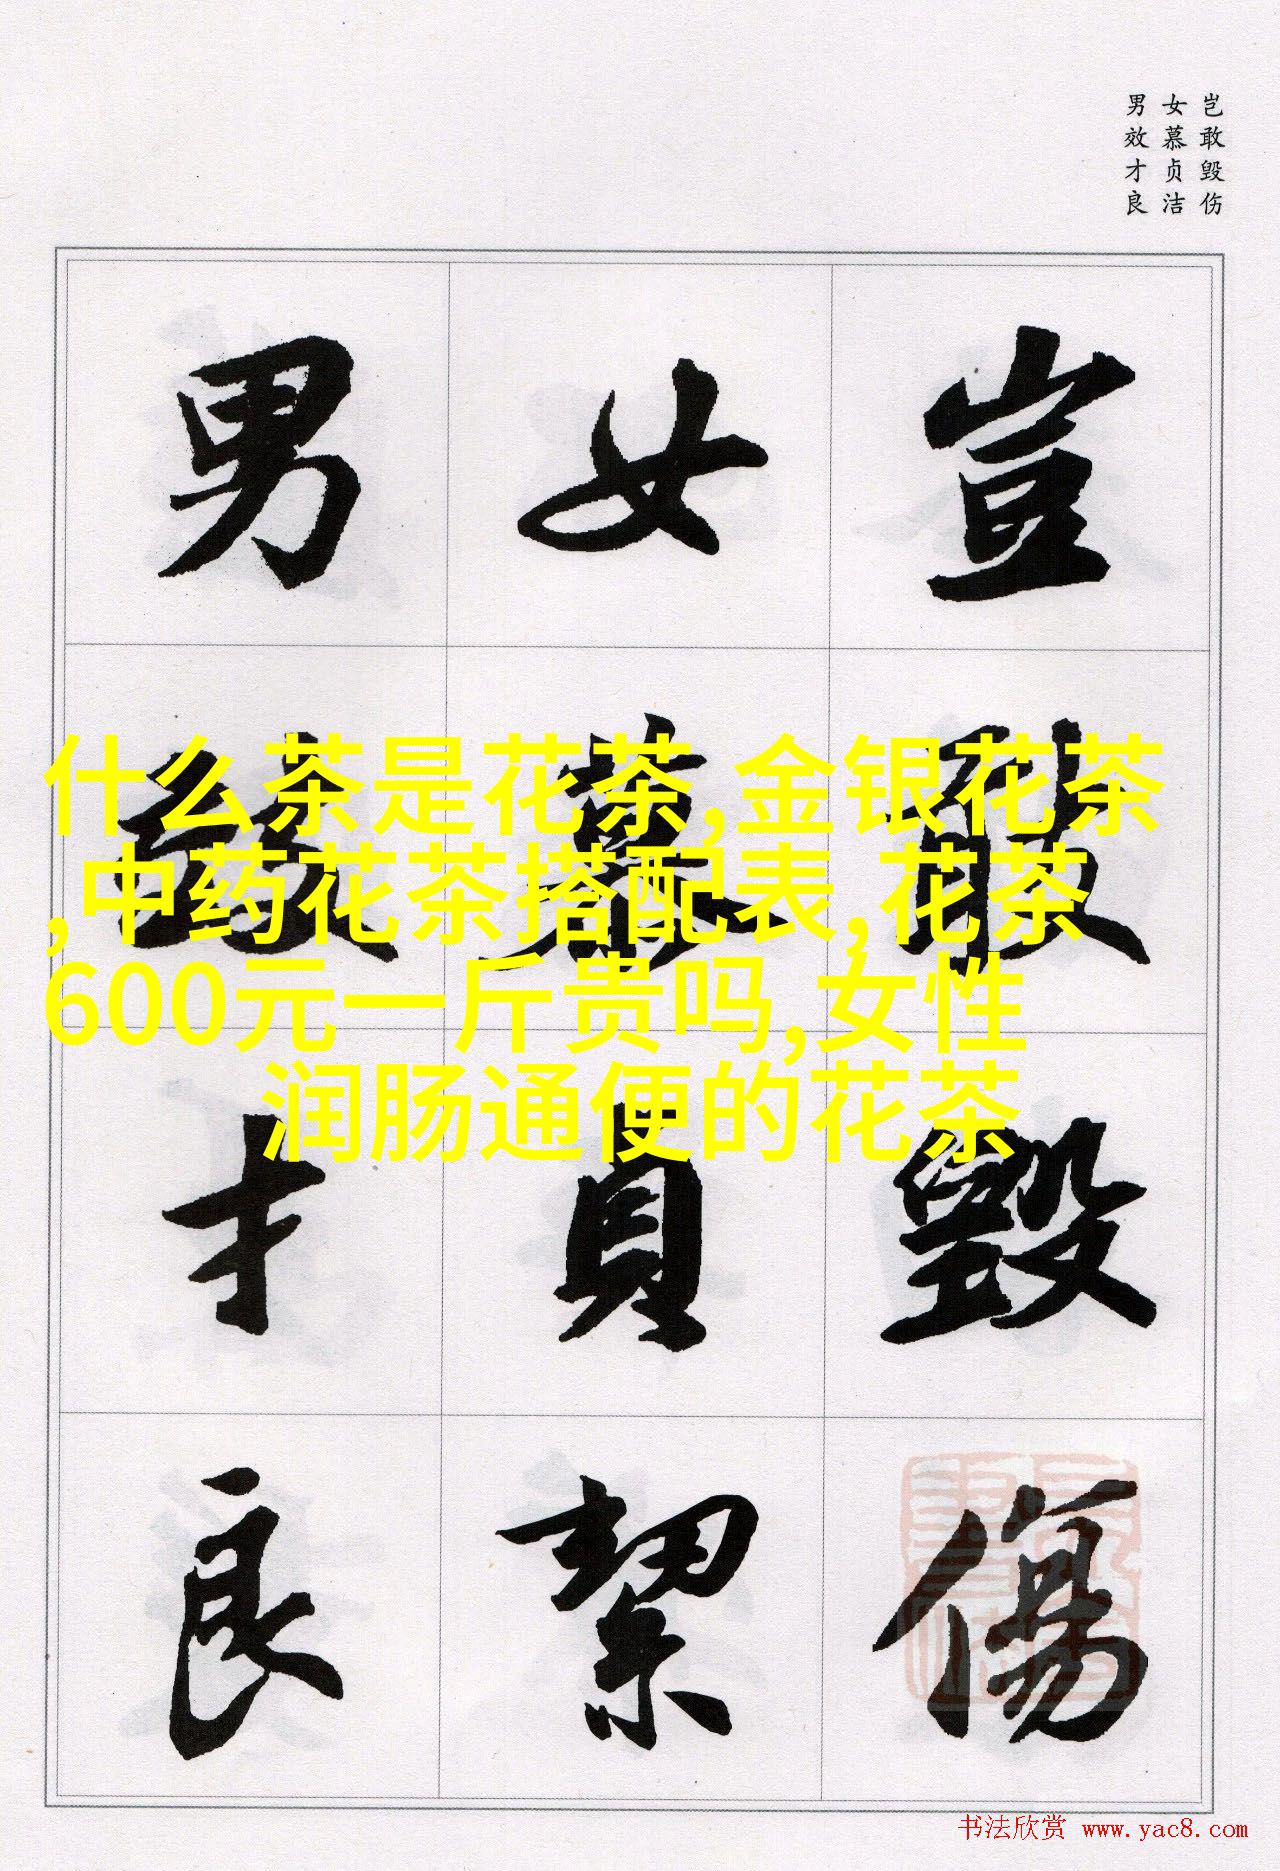 岂敢毁伤
女慕贞洁
男效才良
豈敢毀傷
女慕貞絜
男效才良
什么茶是花茶,金银花茶
,中药花茶搭配表,花茶
600元一斤贵吗,女性
润肠通便的花茶
书法欣赏 www.yac8.com